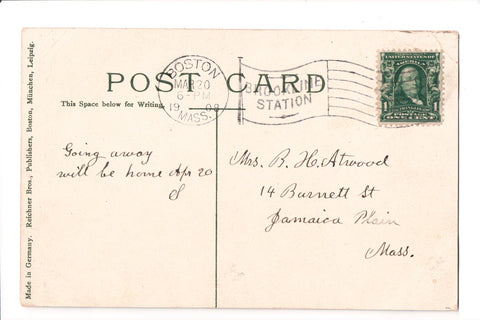 POST CARD
This Space below for Writing.
BOSTON
MAR 20
6-PM
1908
MASS.
BROOKLINE
STATION
1 1
POSTAGE
ONE CENT
Going away
will be home Apr 20
S
Mrs. B. H. Atwood
14 Burnett St
Jamaica Plain
Mass.
Made in Germany. Reichner Bros., Publishers, Boston, München, Leipzig.